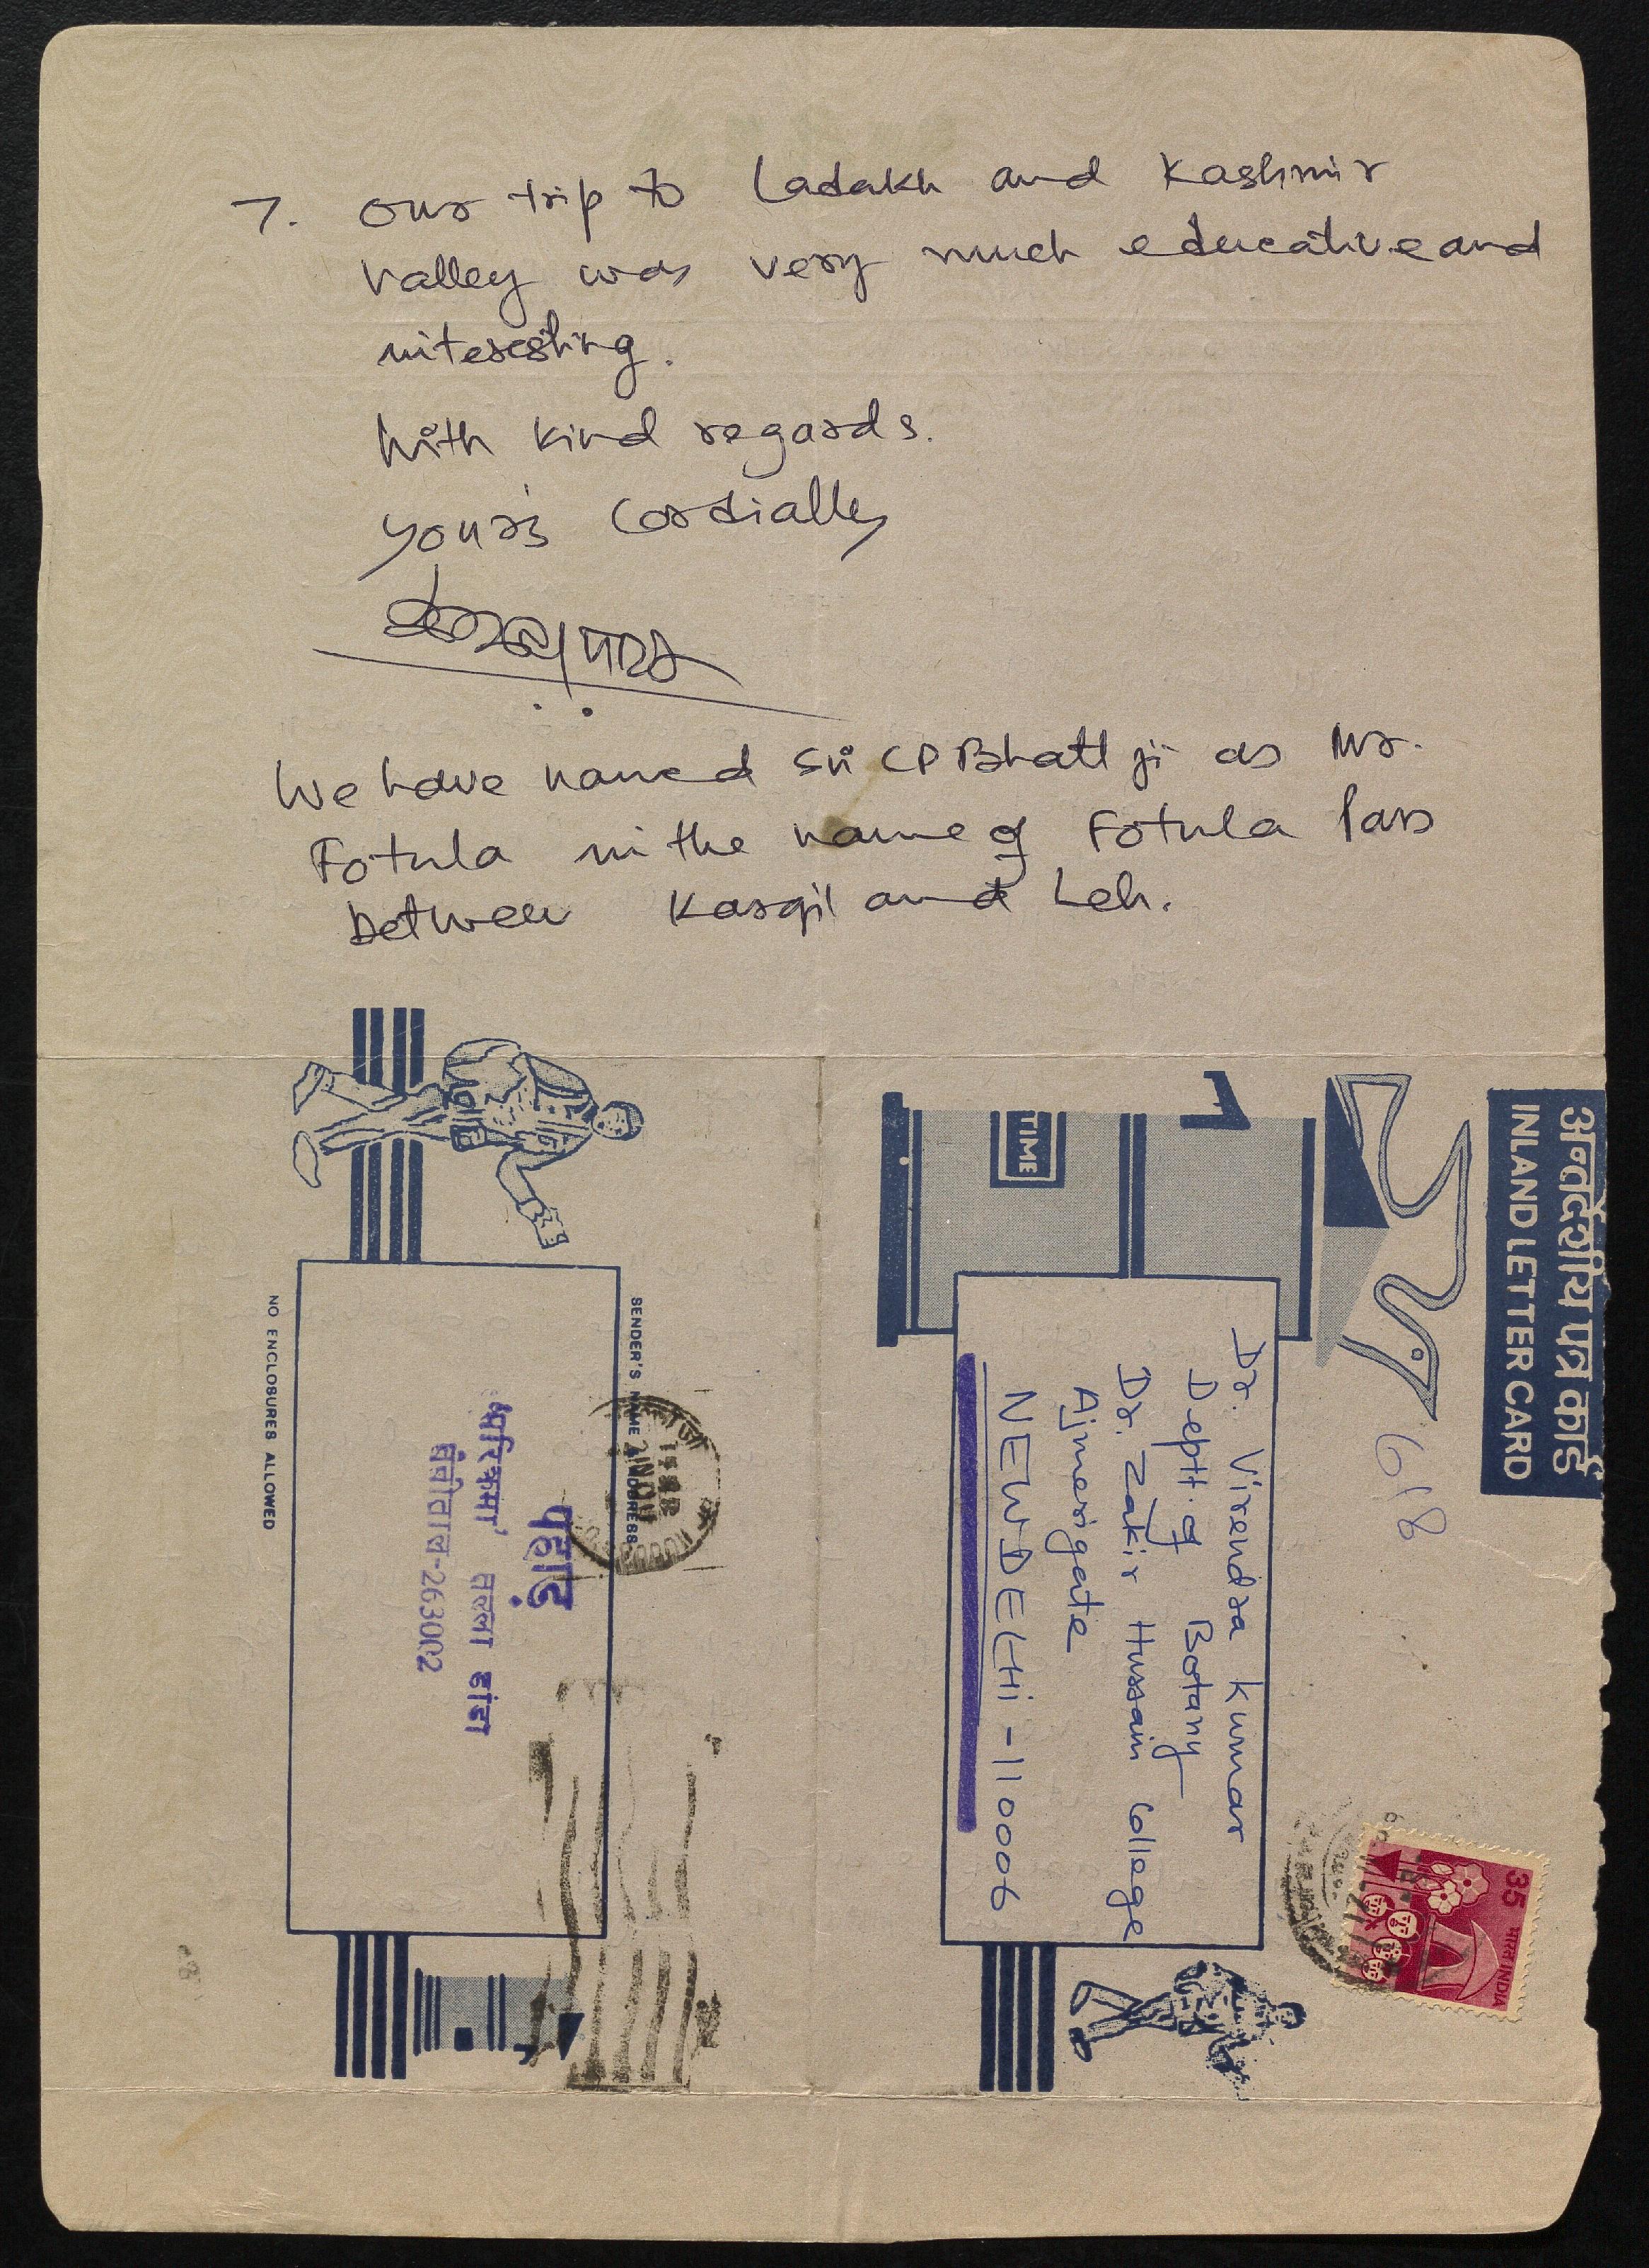 7. Our trip to Ladakh and Kashmir
valley was very much educative and
interesting.
With kind regards.
yours cordially
We have named Sri CP Bhatt ji as Mr.
Fotula in the name of Fotula Pass
between Kargil and Leh.
अन्तर्देशीय पत्र कार्ड
INLAND LETTER CARD
618
TIME
Dr. Virendra Kumar
Deptt. of Botany
Dr. Zakir Hussain College
Ajmerigate
NEW DELHI - 110006
35 भारत INDIA
SENDER'S NAME & ADDRESS
पहाड़
'परिक्रमा' तल्ला डांडा
नैनीताल-263002
NO ENCLOSURES ALLOWED